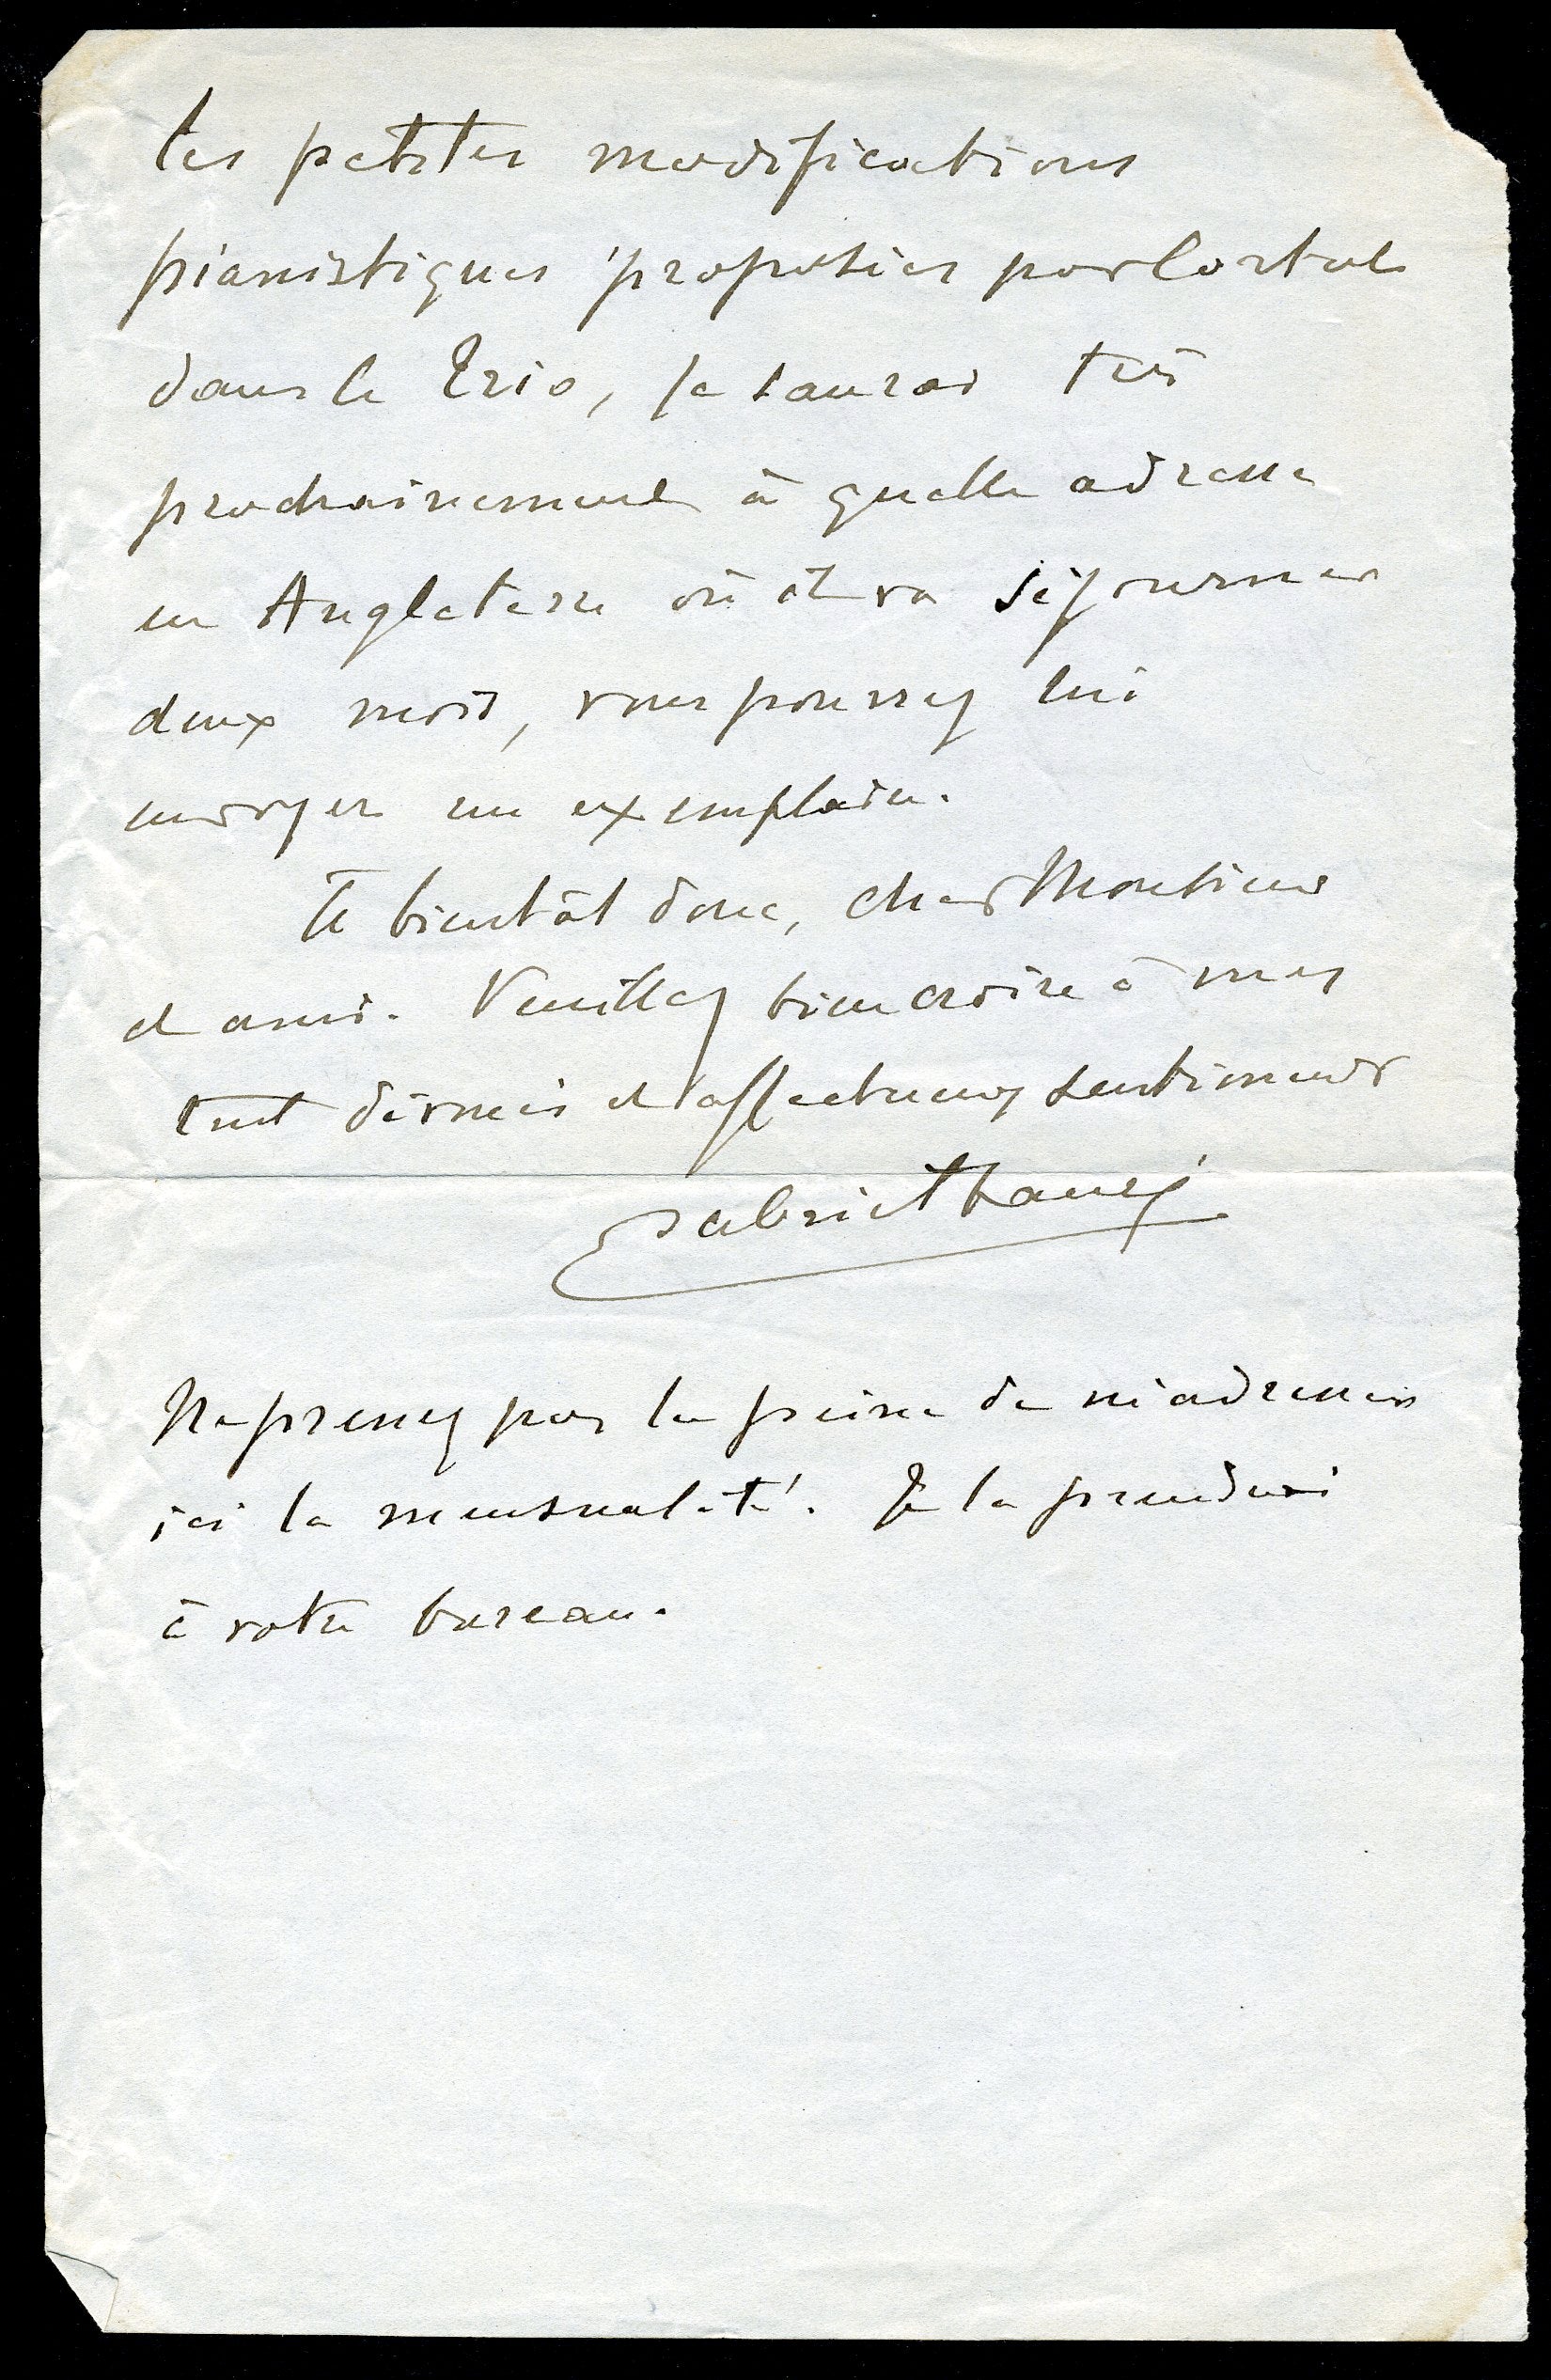 les petites modifications
pianistiques proposées par Cortot
dans le Trio, je saurai très
prochainement à quelle adresse
en Angleterre où il va séjourner
deux mois, vous pourrez lui
envoyer un exemplaire.
A bientôt donc, cher Monsieur
et ami. Veuillez bien croire à mes
tout dévoués et affectueux sentiments
Gabriel Fauré
Ne prenez pas la peine de m'adresser
ici la mensualité. Je la prendrai
à votre bureau.